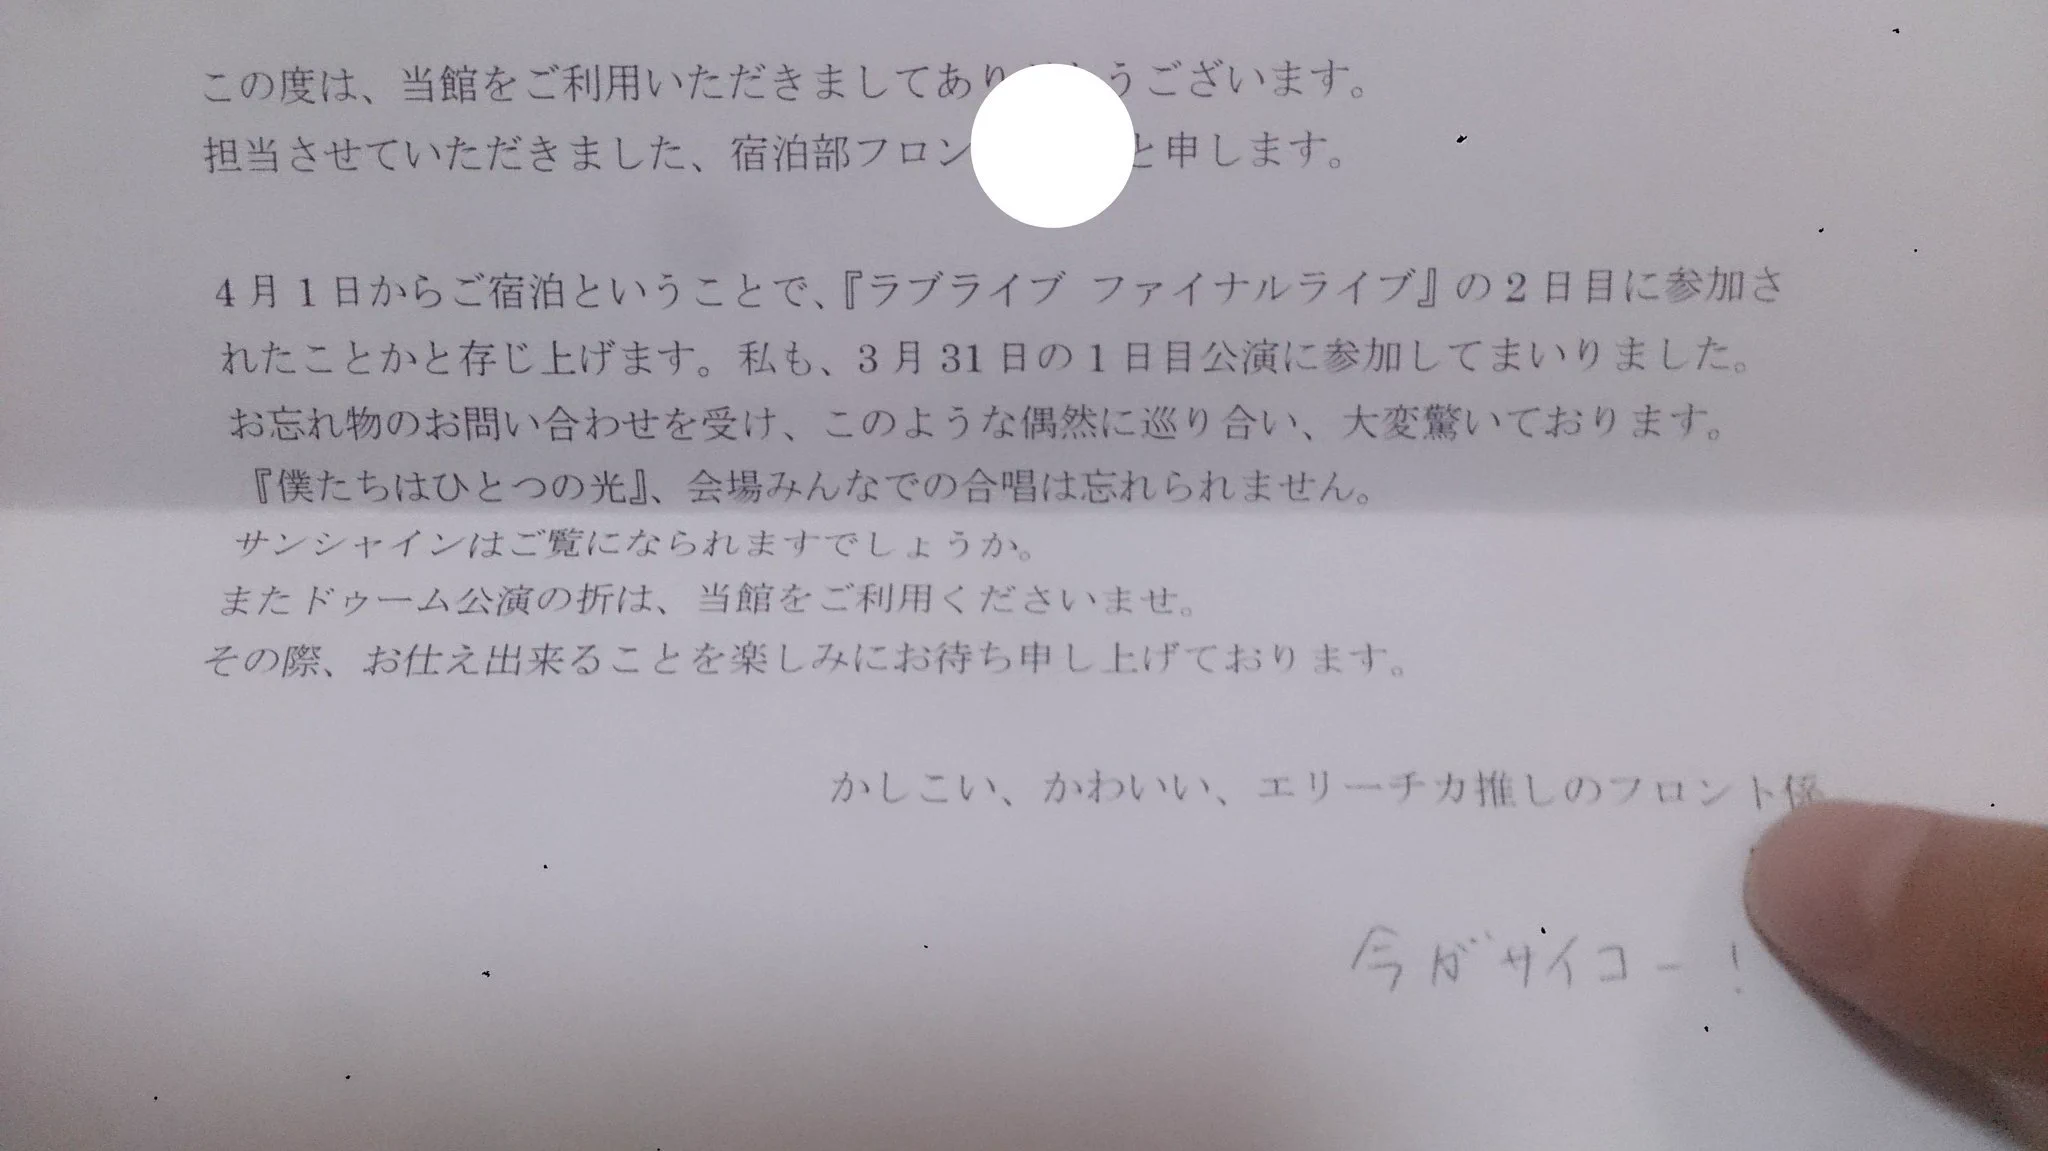 この度は、当館をご利用いただきましてあり うございます。
担当させていただきました、宿泊部フロン と申します。
4月1日からご宿泊ということで、『ラブライブ ファイナルライブ』の2日目に参加さ
れたことかと存じ上げます。私も、3月31日の1日目公演に参加してまいりました。
お忘れ物のお問い合わせを受け、このような偶然に巡り合い、大変驚いております。
『僕たちはひとつの光』、会場みんなでの合唱は忘れられません。
サンシャインはご覧になられますでしょうか。
またドゥーム公演の折は、当館をご利用くださいませ。
その際、お仕え出来ることを楽しみにお待ち申し上げております。
かしこい、かわいい、エリーチカ推しのフロント係
今がサイコー!